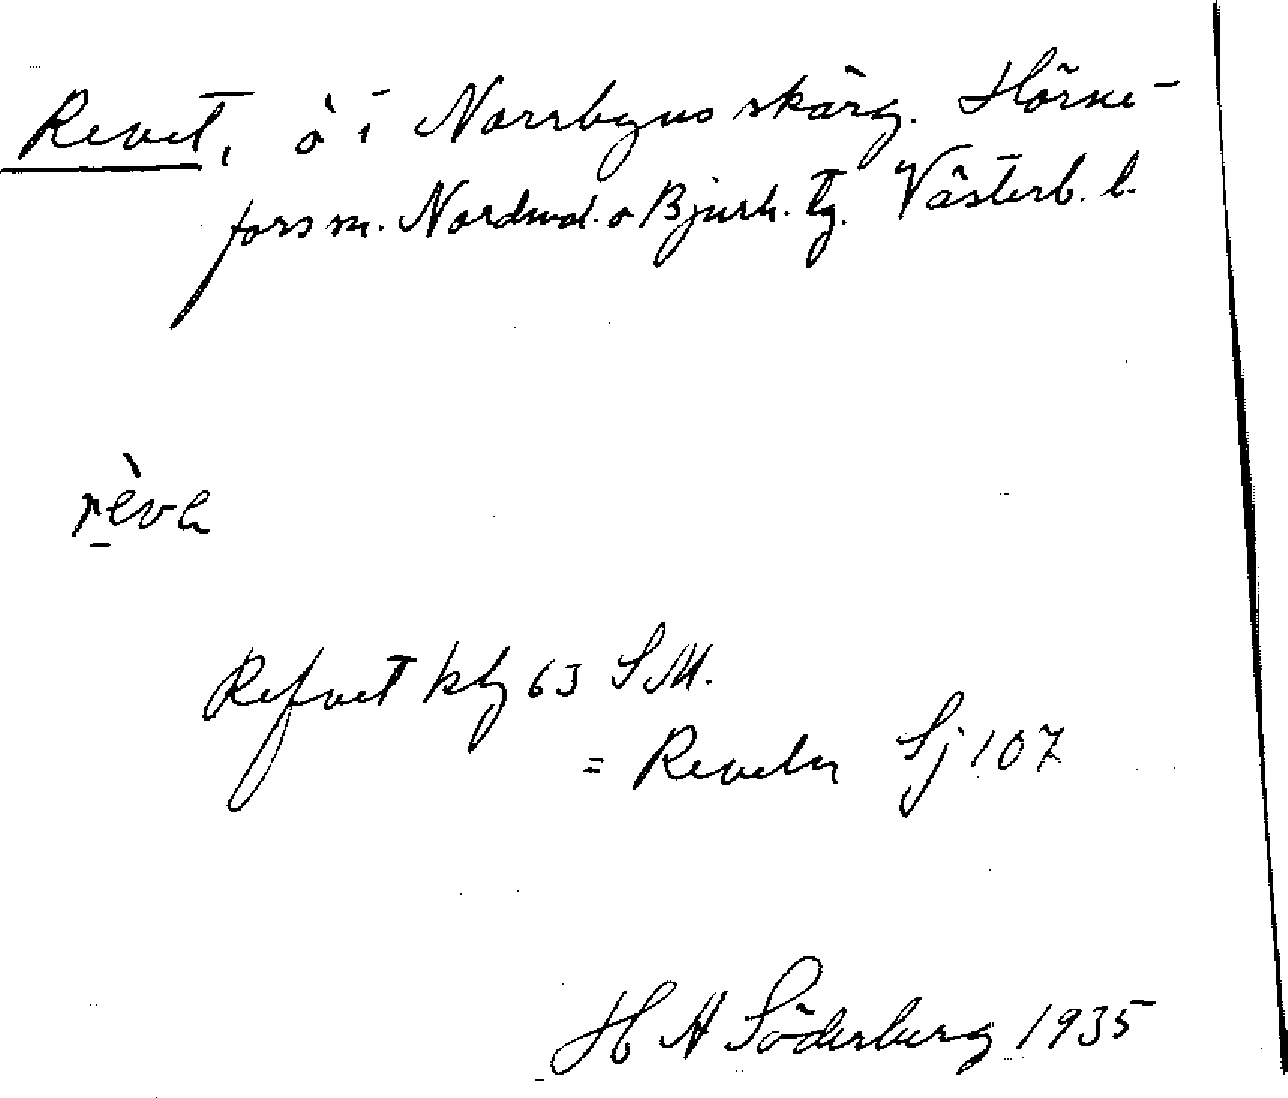 Revet, ö i Norrbyns skärg. Hörne-
fors sn. Nordmal. o Bjurh. tg. Västerb. l.
rève
Refvet kbg 63 SM.
= Reveln Sj 107
H A Söderberg 1935